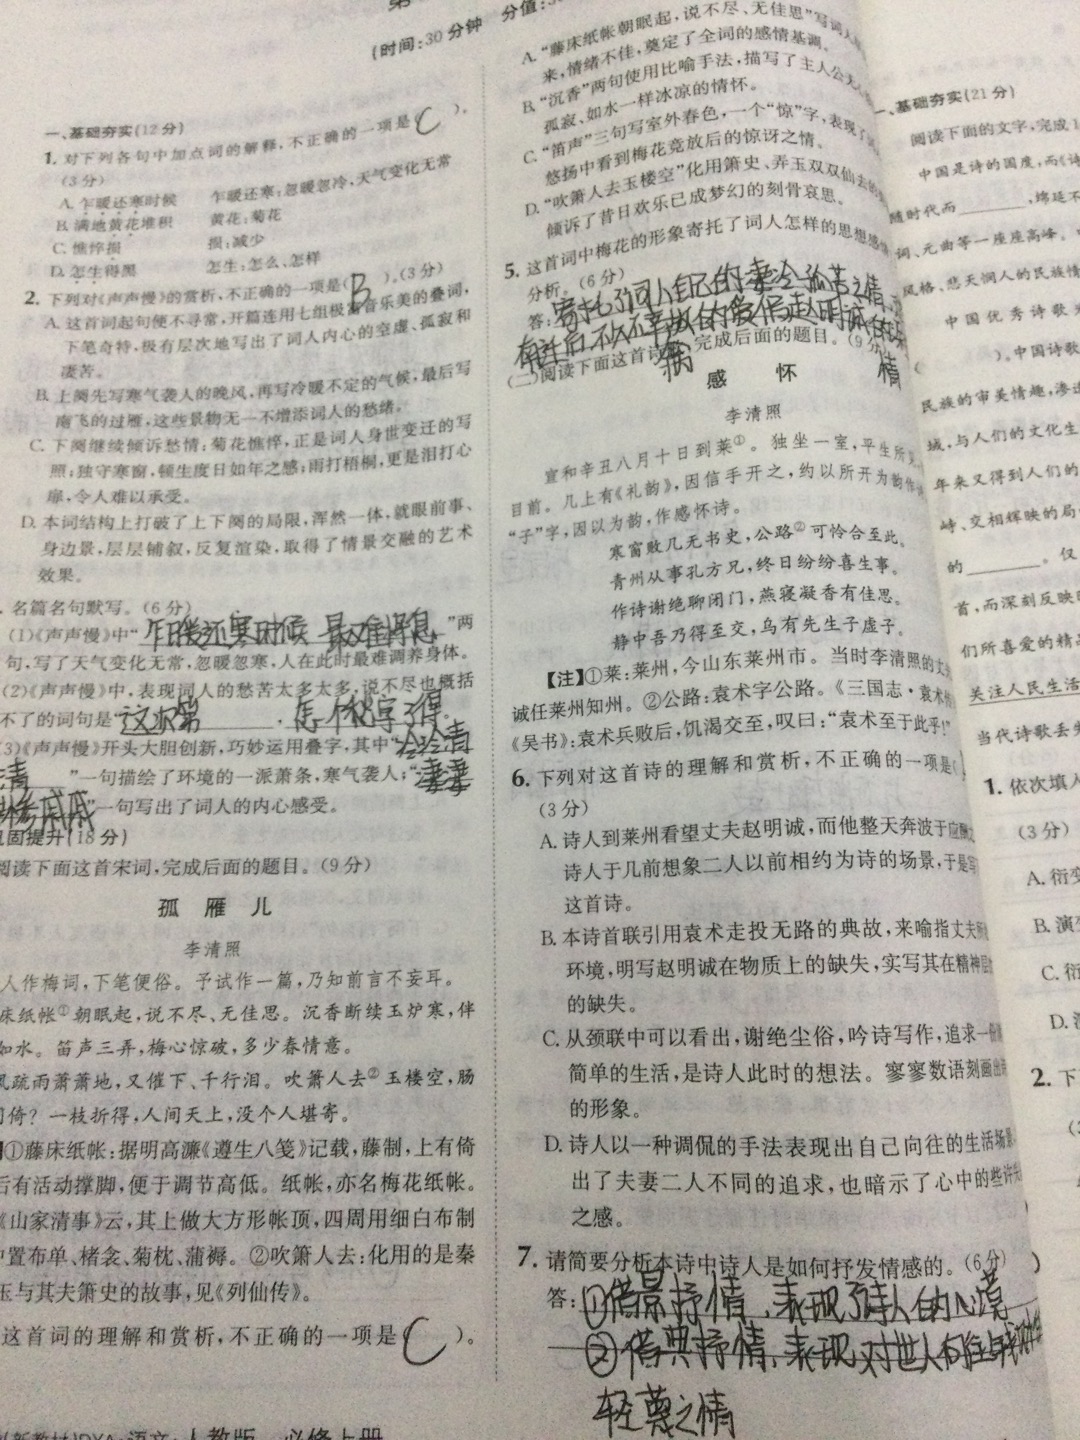 (时间:30分钟 分值:
一、基础夯实(12分)
1. 对下列各句中加点词的解释,不正确的一项是( C )。
(3分)
A. 乍暖还寒时候 乍暖还寒:忽暖忽冷,天气变化无常
B. 满地黄花堆积 黄花:菊花
C. 憔悴损 损:减少
D. 怎生得黑 怎生:怎么、怎样
2. 下列对《声声慢》的赏析,不正确的一项是( B )。(3分)
A. 这首词起句便不寻常,开篇连用七组极富音乐美的叠词,
下笔奇特,极有层次地写出了词人内心的空虚、孤寂和
凄苦。
B. 上阕先写寒气袭人的晚风,再写冷暖不定的气候,最后写
南飞的过雁,这些景物无一不增添词人的愁绪。
C. 下阕继续倾诉愁情:菊花憔悴,正是词人身世变迁的写
照;独守寒窗,顿生度日如年之感;雨打梧桐,更是泪打心
扉,令人难以承受。
D. 本词结构上打破了上下阕的局限,浑然一体,就眼前事、
身边景,层层铺叙,反复渲染,取得了情景交融的艺术
效果。
名篇名句默写。(6分)
(1)《声声慢》中“乍暖还寒时候 最难将息”两
句,写了天气变化无常,忽暖忽寒,人在此时最难调养身体。
(2)《声声慢》中,表现词人的愁苦太多太多,说不尽也概括
不了的词句是 这次第 , 怎一个愁字了得
(3)《声声慢》开头大胆创新,巧妙运用叠字,其中“冷冷清
清”一句描绘了环境的一派萧条,寒气袭人;“凄凄
惨惨戚戚”一句写出了词人的内心感受。
巩固提升(18分)
阅读下面这首宋词,完成后面的题目。(9分)
孤雁儿
李清照
人作梅词,下笔便俗。予试作一篇,乃知前言不妄耳。
床纸帐①朝眠起,说不尽、无佳思。沉香断续玉炉寒,伴
如水。笛声三弄,梅心惊破,多少春情意。
风疏雨萧萧地,又催下、千行泪。吹箫人去②玉楼空,肠
倚?一枝折得,人间天上,没个人堪寄。
①藤床纸帐:据明高濂《遵生八笺》记载,藤制,上有倚
后有活动撑脚,便于调节高低。纸帐,亦名梅花纸帐。
《山家清事》云,其上做大方形帐顶,四周用细白布制
中置布单、楮衾、菊枕、蒲褥。②吹箫人去:化用的是秦
玉与其夫箫史的故事,见《列仙传》。
这首词的理解和赏析,不正确的一项是( C )。
语文·人教版 必修上册
A. “藤床纸帐朝眠起,说不尽、无佳思”写词人
来,情绪不佳,奠定了全词的感情基调。
B. “沉香”两句使用比喻手法,描写了主人公
孤寂、如水一样冰凉的情怀。
C. “笛声”三句写室外春色,一个“惊”字,表现了
悠扬中看到梅花竞放后的惊讶之情。
D. “吹箫人去玉楼空”化用箫史、弄玉双双仙去的
倾诉了昔日欢乐已成梦幻的刻骨哀思。
5. 这首词中梅花的形象寄托了词人怎样的思想感
分析。(6分)
答:寄托了词人自己的凄冷孤苦之情
南迁后不久不幸病故的爱侣赵明诚的
情
(二)阅读下面这首诗,完成后面的题目。(9分
感怀
李清照
宣和辛丑八月十日到莱①。独坐一室,平生所
目前。几上有《礼韵》,因信手开之,约以所开为韵作
“子”字,因以为韵,作感怀诗。
寒窗败几无书史,公路②可怜合至此。
青州从事孔方兄,终日纷纷喜生事。
作诗谢绝聊闭门,燕寝凝香有佳思。
静中吾乃得至交,乌有先生子虚子。
【注】①莱:莱州,今山东莱州市。当时李清照的丈
诚任莱州知州。②公路:袁术字公路。《三国志·袁术
《吴书》:袁术兵败后,饥渴交至,叹曰:“袁术至于此乎!”
6. 下列对这首诗的理解和赏析,不正确的一项是(
(3分)
A. 诗人到莱州看望丈夫赵明诚,而他整天奔波于应酬
诗人于几前想象二人以前相约为诗的场景,于是写
这首诗。
B. 本诗首联引用袁术走投无路的典故,来喻指丈夫
环境,明写赵明诚在物质上的缺失,实写其在精神
的缺失。
C. 从颈联中可以看出,谢绝尘俗,吟诗写作,追求一份
简单的生活,是诗人此时的想法。寥寥数语刻画出
的形象。
D. 诗人以一种调侃的手法表现出自己向往的生活场
出了夫妻二人不同的追求,也暗示了心中的些许
之感。
7. 请简要分析本诗中诗人是如何抒发情感的。(6分)
答:①借景抒情,表现了诗人的心境
②借典抒情,表现对世人
轻蔑之情
一、基础夯实(21分)
阅读下面的文字,完成1
中国是诗的国度,而《诗
随时代而________,绵延不
词、元曲等一座座高峰。
风格、悲天悯人的民族情
中国优秀诗歌
)。中国诗歌
民族的审美情趣,渗透
域,与人们的文化生
年来又得到人们的
峙、交相辉映的局
的________。仅
首,而深刻反映
们所喜爱的精品
关注人民生活
当代诗歌丢失
1. 依次填入
(3分)
A. 衍变
B. 演变
C. 衍
D. 演
2. 下